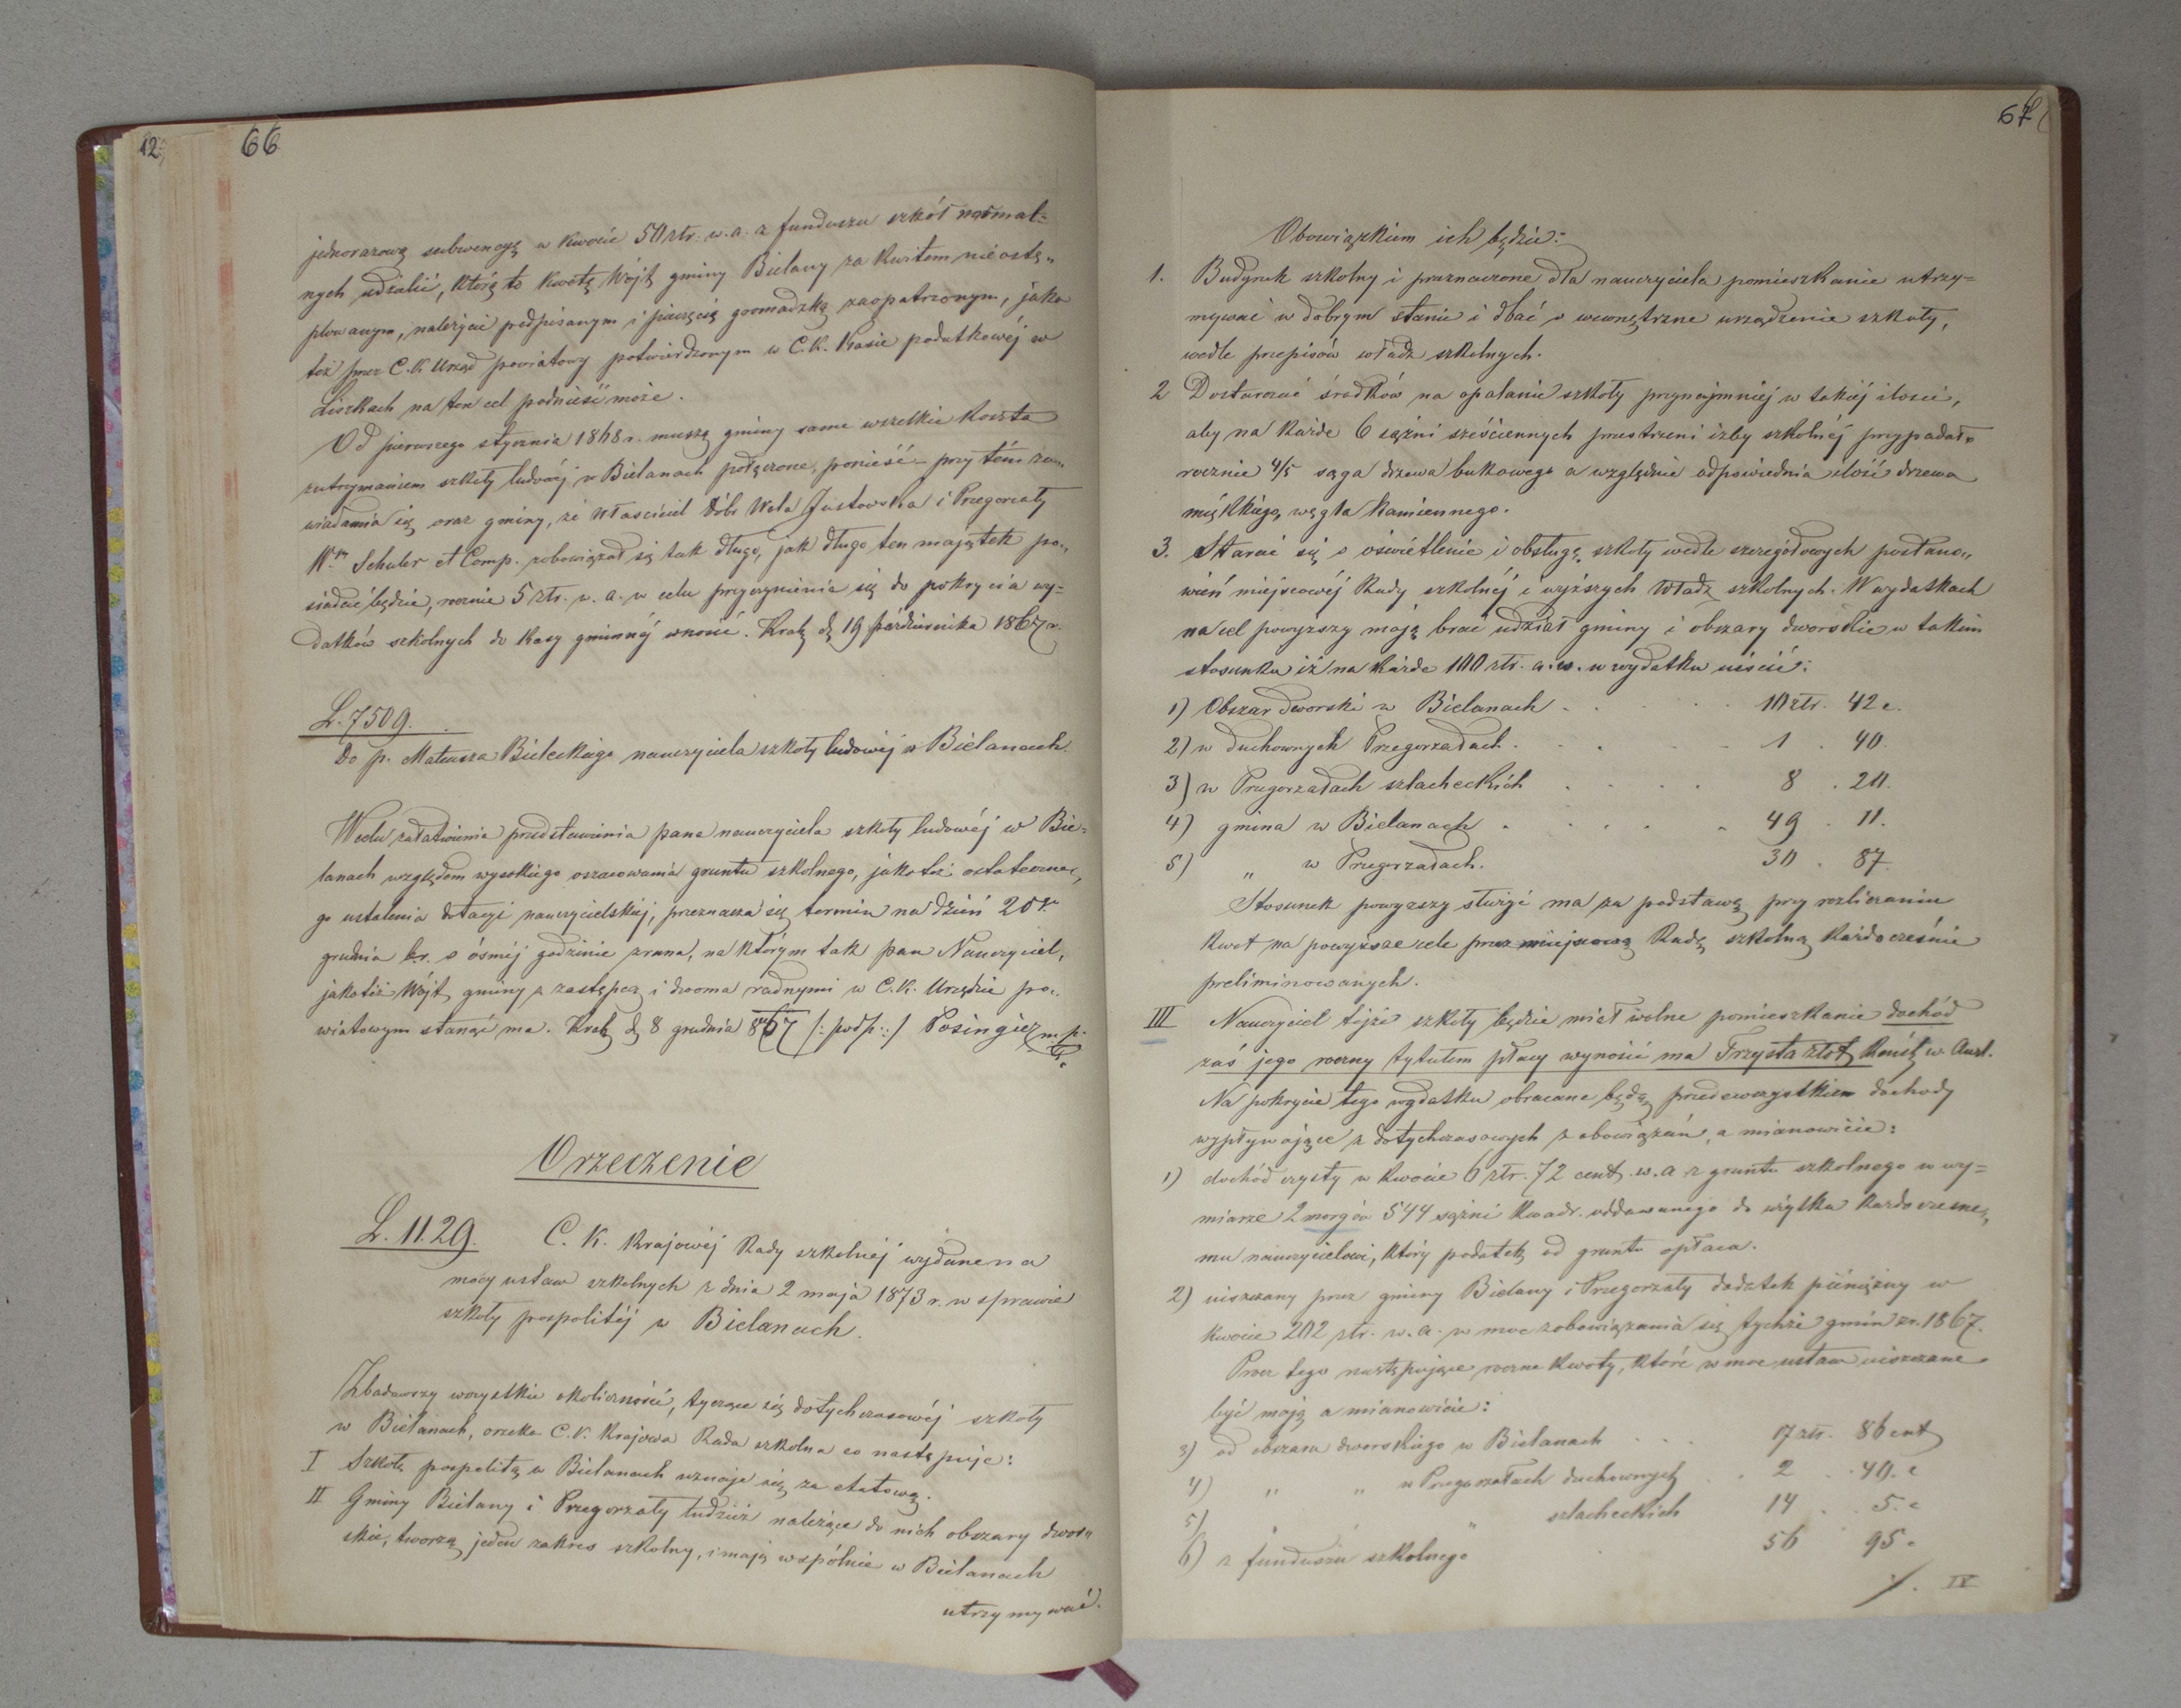 12.
66
jednorazową subwencyą w kwocie 50 złr. w. a. z funduszu szkół normal=
nych udzielić, którą to kwotę Wójt gminy Bielany za kwitem nieostę„
plowanym, należycie podpisanym i pieczęcią gromadzką zaopatrzonym, jako
też przez C. K. Urząd powiatowy potwierdzonym w C. K. Kasie podatkowéj w
Liszkach na ten cel podnieść może.
Od pierwszego stycznia 1868 r. muszą gminy same wszelkie koszta
z utrzymaniem szkoły ludowéj w Bielanach połączone, ponieść – przy tém za„
wiadamia się oraz gminy, że właściciel dóbr Wola Justowska i Przegorzały
Wny Schuler et Comp. zobowiązał się tak długo, jak długo ten majątek po„
siadać będzie, rocznie 5 złr. w. a. w celu przyczynienia się do pokrycia wy=
datków szkolnych do kasy gminnéj wnosić. Krak. d. 19 października 1867 r.
L. 7509.
Do p. Mateusza Bieleckiego nauczyciela szkoły ludowéj w Bielanach.
W celu załatwienia przedstawienia pana nauczyciela szkoły ludowéj w Bie=
lanach względem wysokiego oszacowania gruntu szkolnego, jakoteż ostateczne„
go ustalenia dotacyi nauczycielskiej, przeznacza się termin na dzień 20go
grudnia b.r. o ósméj godzinie zrana, na którym tak pan Nauczyciel,
jakoteż Wójt gminy z zastępcą i dwoma radnymi w C. K. Urzędzie po„
wiatowym stanąć ma. Krak. d. 8 grudnia 867 /: podp: :/ Posinger m. p.
Orzeczenie
L. 1129. C. K. Krajowéj Rady szkolnéj wydane na
mocy ustaw szkolnych z dnia 2 maja 1873 r. w sprawie
szkoły pospolitéj w Bielanach.
Zbadawszy wszystkie okoliczności, tyczące się dotychczasowéj szkoły
w Bielanach, orzeka C. K. Krajowa Rada szkolna co następuje:
I Szkołę pospolitą w Bielanach uznaje się za etatową.
II Gminy Bielany i Przegorzały tudzież należące do nich obszary dwor„
skie, tworzą jeden zakres szkolny, i mają wspólnie w Bielanach
utrzymywać.
67
Obowiązkiem ich będzie:
1. Budynek szkolny i przeznaczone dla nauczyciela pomieszkanie utrzy=
mywać w dobrym stanie i dbać o wewnętrzne urządzenie szkoły,
wedle przepisów władz szkolnych.
2 Dostarczać środków na opalanie szkoły przynajmniej w takiéj ilości,
aby na każde 6 sążni sześciennych przestrzeni izby szkolnéj przypadało
rocznie 4/5 sąga drzewa bukowego a względnie odpowiednia ilość drzewa
miękkiego, węgla kamiennego.
3. Starać się o oświetlenie i obsługę szkoły wedle szczegółowych postano„
wień miejscowéj Rady szkolnéj i wyższych Władz szkolnych. W wydatkach
na cel powyższy mają brać udział gminy i obszary dworskie w takim
stosunku iż na każde 100 złr. a. w. w wydatku uiścić:
1) Obszar dworski w Bielanach . . . . 10 złr. 42 c.
2) w duchownych Przegorzałach . . . . 1 . 40.
3) w Przegorzałach szlacheckich . . . . 8 . 20.
4) gmina w Bielanach . . . . . 49 . 11.
5) „ w Przegorzałach. 30 . 87.
Stosunek powyższy służyć ma za podstawę przy rozliczaniu
kwot na powyższe cele przez miejscową Radę szkolną każdocześnie
preliminowanych.
III Nauczyciel tejże szkoły będzie miał wolne pomieszkanie dochód
zaś jego roczny tytułem płacy wynosić ma Trzysta złot. Reńsk. w. Aust.
Na pokrycie tego wydatku obracane będą przedewszystkiem dochody
wypływające z dotychczasowych zobowiązań, a mianowicie:
1) dochód czysty w kwocie 6 złr. 72 cent. w. a z gruntu szkolnego w wy=
miarze 2 morgów 544 sążni kwadr. oddawanego do użytku każdoczesne„
mu nauczycielowi, który podatek od gruntu opłaca.
2) uiszczany przez gminy Bielany i Przegorzały dodatek pieniężny w
kwocie 202 złr. w. a. w moc zobowiązania się tychże gmin z r. 1867.
Prócz tego następujące roczne kwoty, które w moc ustaw uiszczane
być mają a mianowicie:
3) od obszaru dworskiego w Bielanach . . . 17 złr. 86 cent
4) „ „ w Przegorzałach duchownych . . 2 . . 40. c
5) „ „ szlacheckich 14 . . 5. c
6) z funduszu szkolnego 56 95 c
./. IV